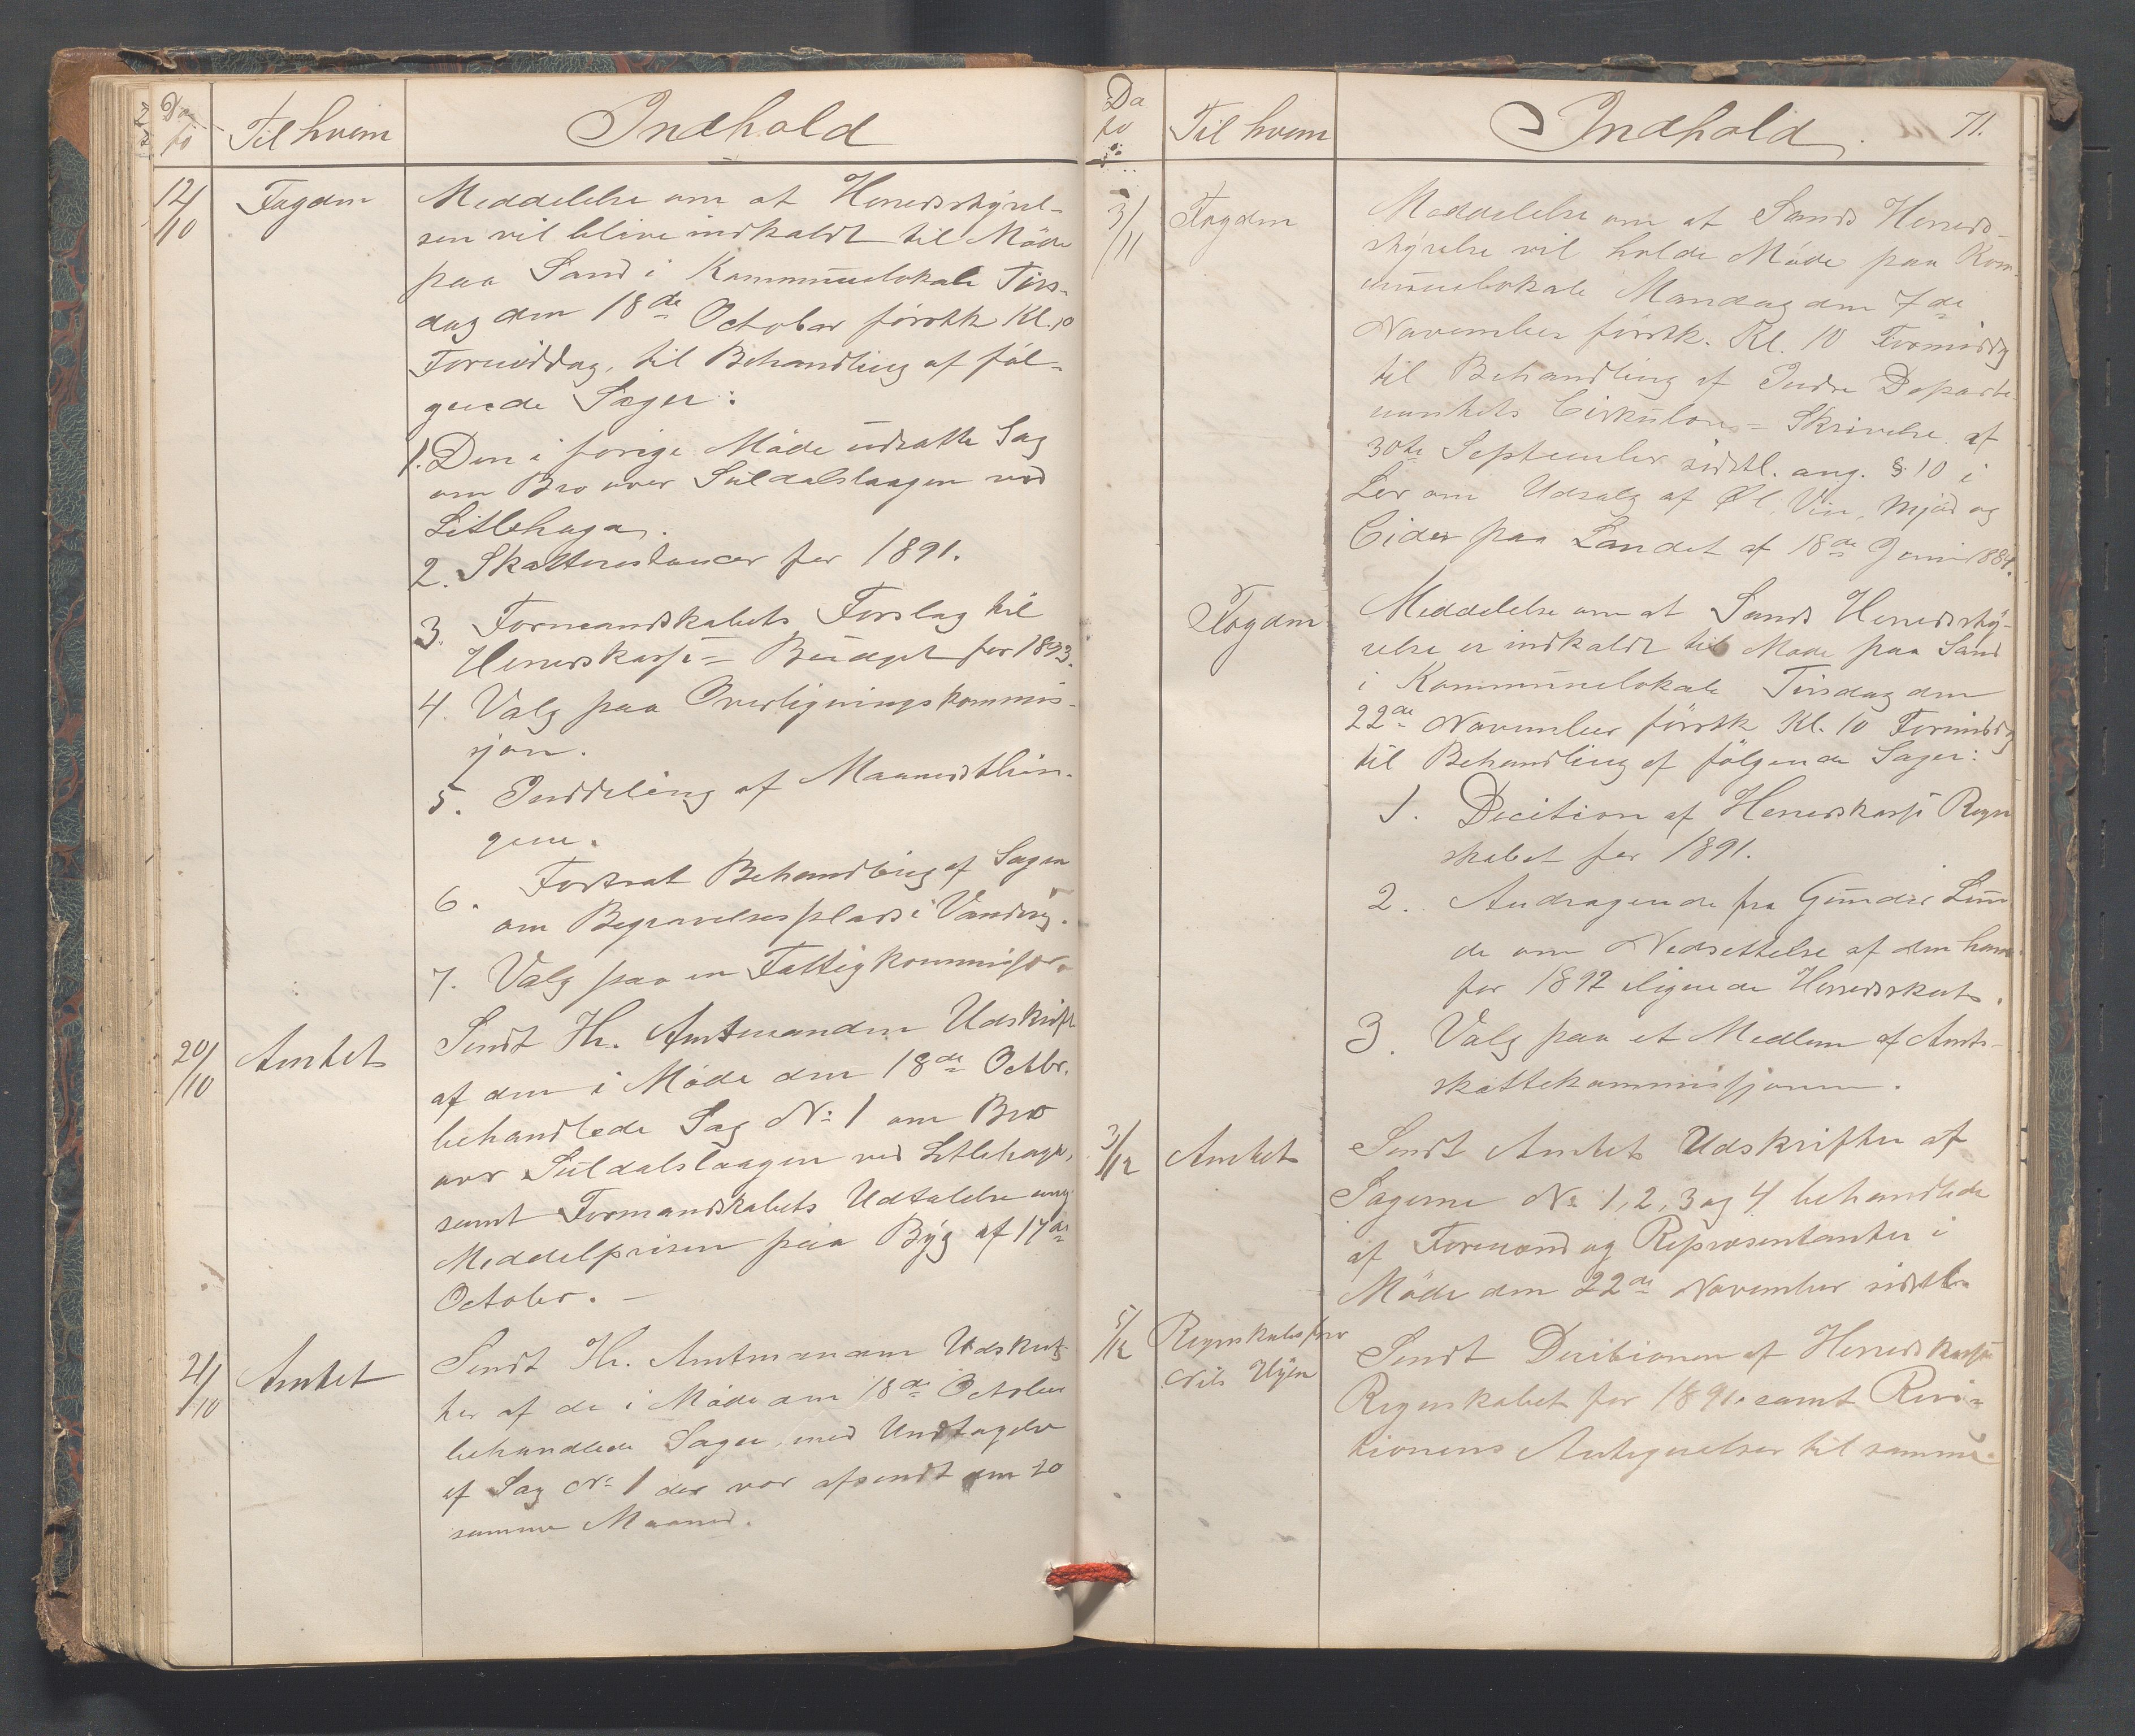 Dato
Til hvem
Indhold
12/10
Fogden
Meddelelse om at Herredsstyrel-
sen vil blive indkaldt til Möde
paa Sand i Kommunelokale Tirs-
dag den 18de October förstk Kl. 10
Formiddag, til Behandling af föl-
gende Sager:
1. Den i forige Möde udsatte Sag
om Bro over Suldalslaagen ved
Litlehaga.
2. Skatterestancer for 1891.
3. Formandskabets Forslag til
Herredskasse- Budget for 1893.
4. Valg paa Overligningskommis-
sjon.
5. Inddeling af Maanedsthin-
gene.
6. Fortsat Behandling af Sagen
om Begravelsesplads i Vanvig.
7. Valg paa en Fattigkommissær.
20/10
Amtet
Sendt Hr. Amtmanden Udskrift
af den i Möde den 18de Octbr.
behandlede Sag No 1 om Bro
over Suldalslaagen ved Litlehaga,
samt Formandskabets Udtalelse ang.
Meddelprisen paa Byg af 17de
October. —
21/10
Amtet
Sendt Hr. Amtmanden Udskrif-
ter af de i Möde den 18de October
behandlede Sager, med Undtagelse
af Sag No 1 der var afsendt den 20
samme Maaned.
Dato
Til hvem
Indhold.
71.
3/11
Fogden
Meddelelse om at Sands Herreds-
styrelse vil holde Möde paa Kom-
munelokale Mandag den 7de
November förstk. Kl. 10 Formiddg
til Behandling af Indre Departe-
mentets Cirkulære- Skrivelse af
30te September sidstl. ang. § 10 i
Lov om Udsalg af Øl, Vin, Mjød og
Cider paa Landet af 18de Juni 1884.
Fogden
Meddelelse om at Sands Herredssty-
relse er indkaldt til Möde paa Sand
i Kommunelokale Tirsdag den
22de November förstk Kl. 10 Formiddg
til Behandling af fölgende Sager:
1. Decition af Herredskasse Regn
skabet for 1891.
2. Andragende fra Gunder Lun
de om Nedsettelse af den ham
for 1892 ilignede Herredsskat.
3. Valg paa et Medlem af Amts-
skattekommissjonen.
3/12
Amtet
Sendt Amtet Udskrifter af
Sagerne No 1, 2, 3 og 4 behandlede
af Formænd og Repræsentanter i
Möde den 22de November sidstl.
5/12
Regnskabsfører
Nils
Sendt Decitionen af Herredskasse
Regnskabet for 1891. samt Revi-
tionens Antegnelser til samme.